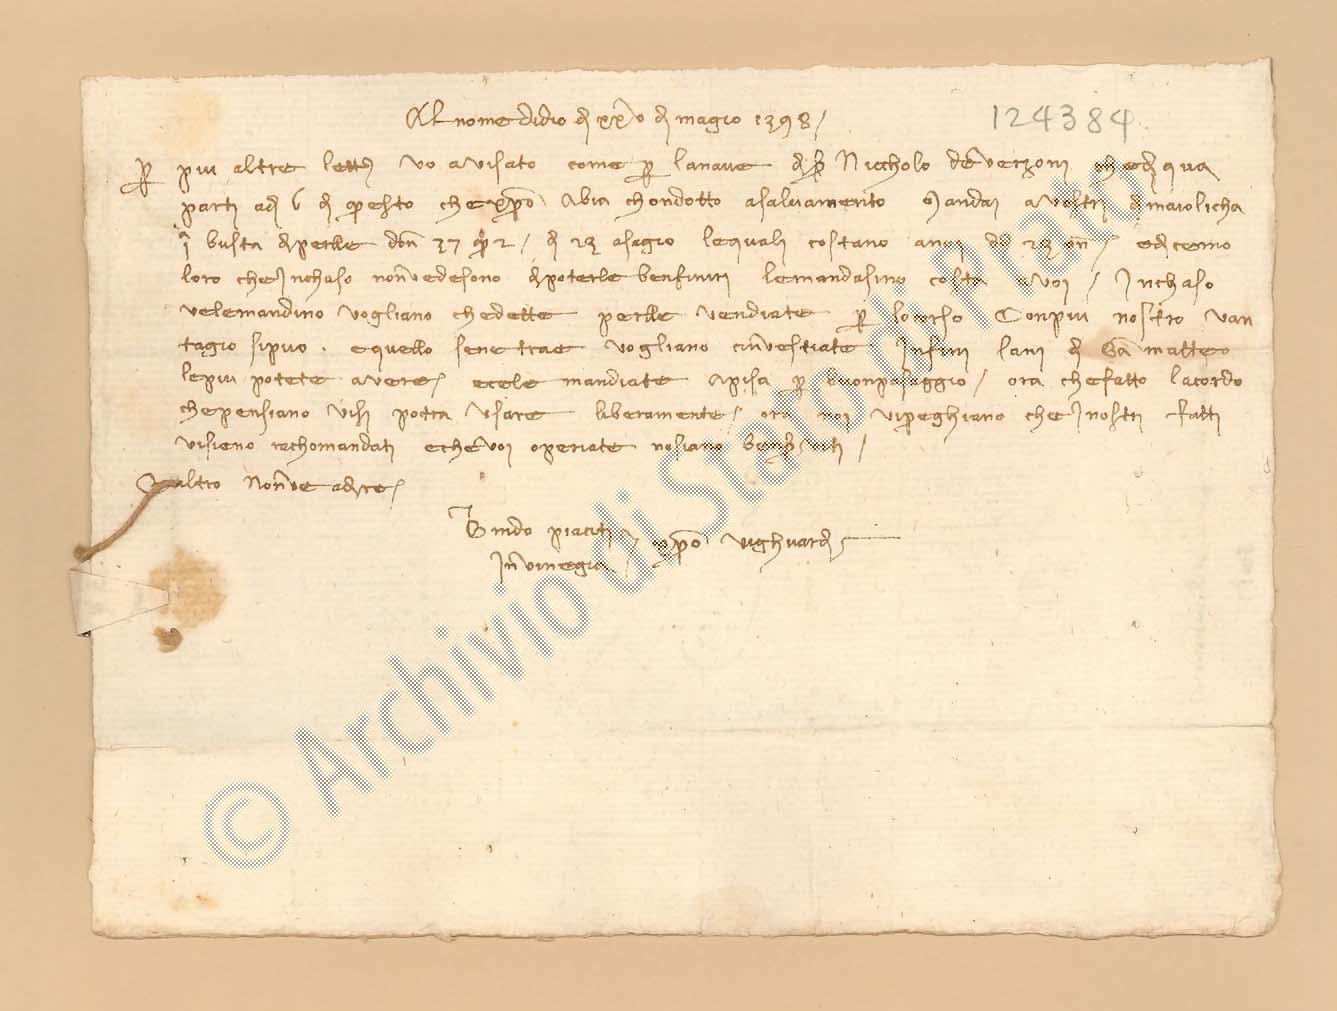 Al nome di dio dì xxv dì magio 1398 /
124384
Per piu altre lett vo avisato come per la nave di Niccholo de verzoni che di qua
parti a dì 6 di questo che xpo abia chondotto a salvamento mandai a vostri di maiolicha
1 busta di perlle 37 2 / lequali costano a noi / e dicemo
loro che Inchaso non vedesono di poterle ben finiri le mandasino costa a voi / Inchaso
velemandino vogliano che dette perlle vendiate per lo corso Con piu nostro van
tagio si puo . e quello se ne trae vogliano investiate In fini lani di San matteo
le piu potete avere / e cele mandiate a pisa per buon pasaggio / ora che fatto lacordo
che pensiano visi potra usare liberamente / ora noi vi preghiano che I nostri fatti
visieno rachomandati e che voi operiate no siano ben serviti /
Jn altro Non ve a dire /
Bindo piaciti
In vinegia /
© Archivio di Stato di Prato